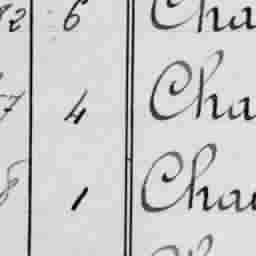 2 6 Cha
7 4 Cha
8 1 Cha